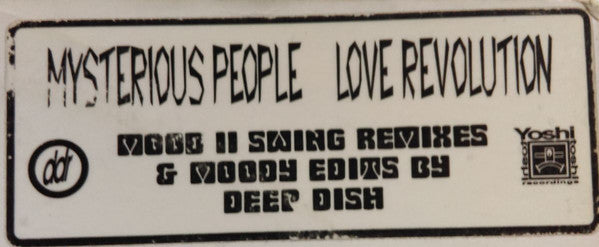 MYSTERIOUS PEOPLE LOVE REVOLUTION
MOOD II SWING REMIXES
& MOODY EDITS BY
DEEP DISH
ddr
Yoshi
toshi
recordings